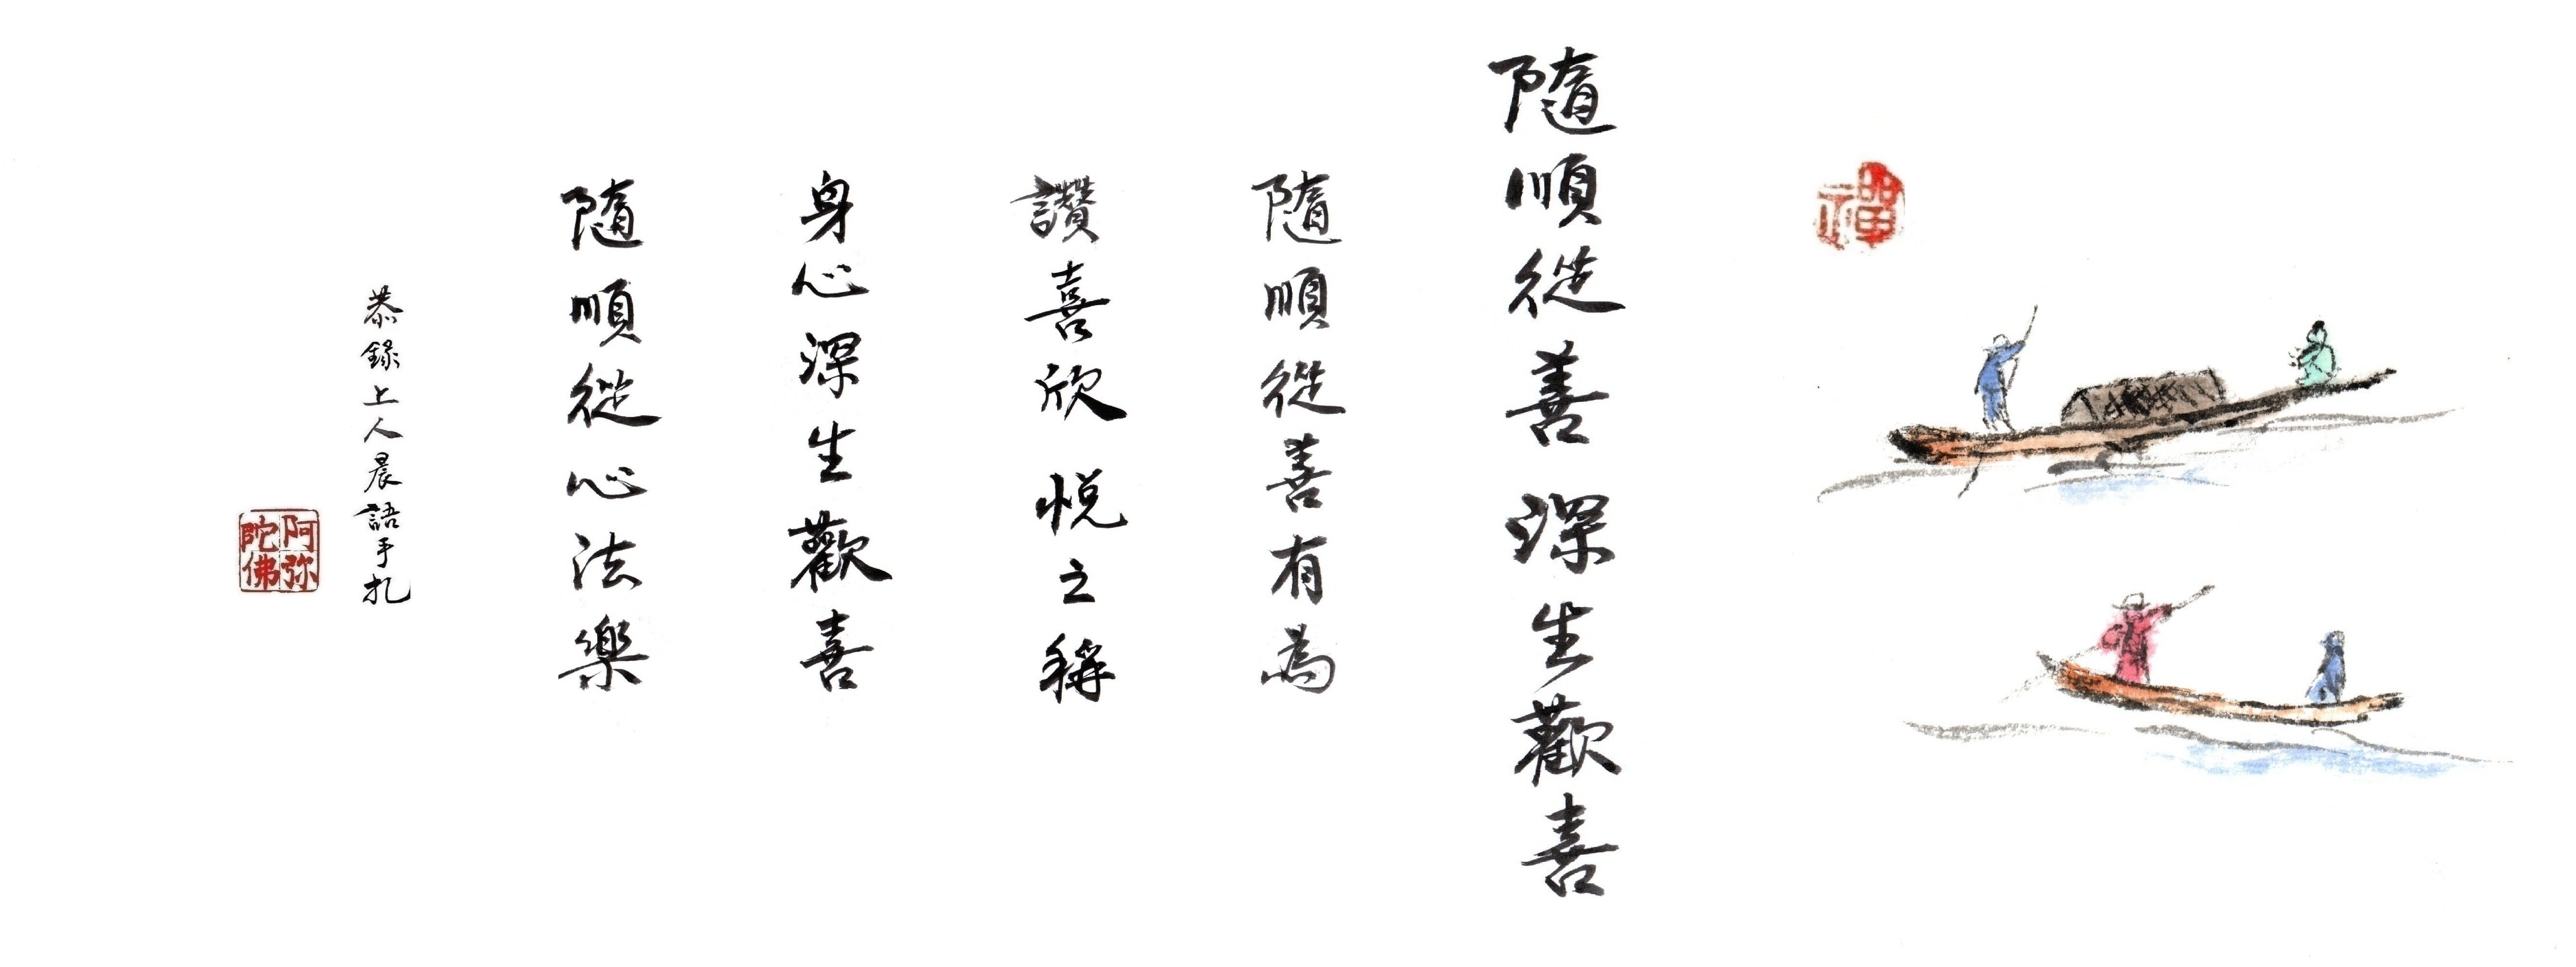 禪
隨順從善深生歡喜
隨順從善有為
讚喜欣悅之稱
身心深生歡喜
隨順從心法樂
恭錄上人晨語手扎
阿弥陀佛